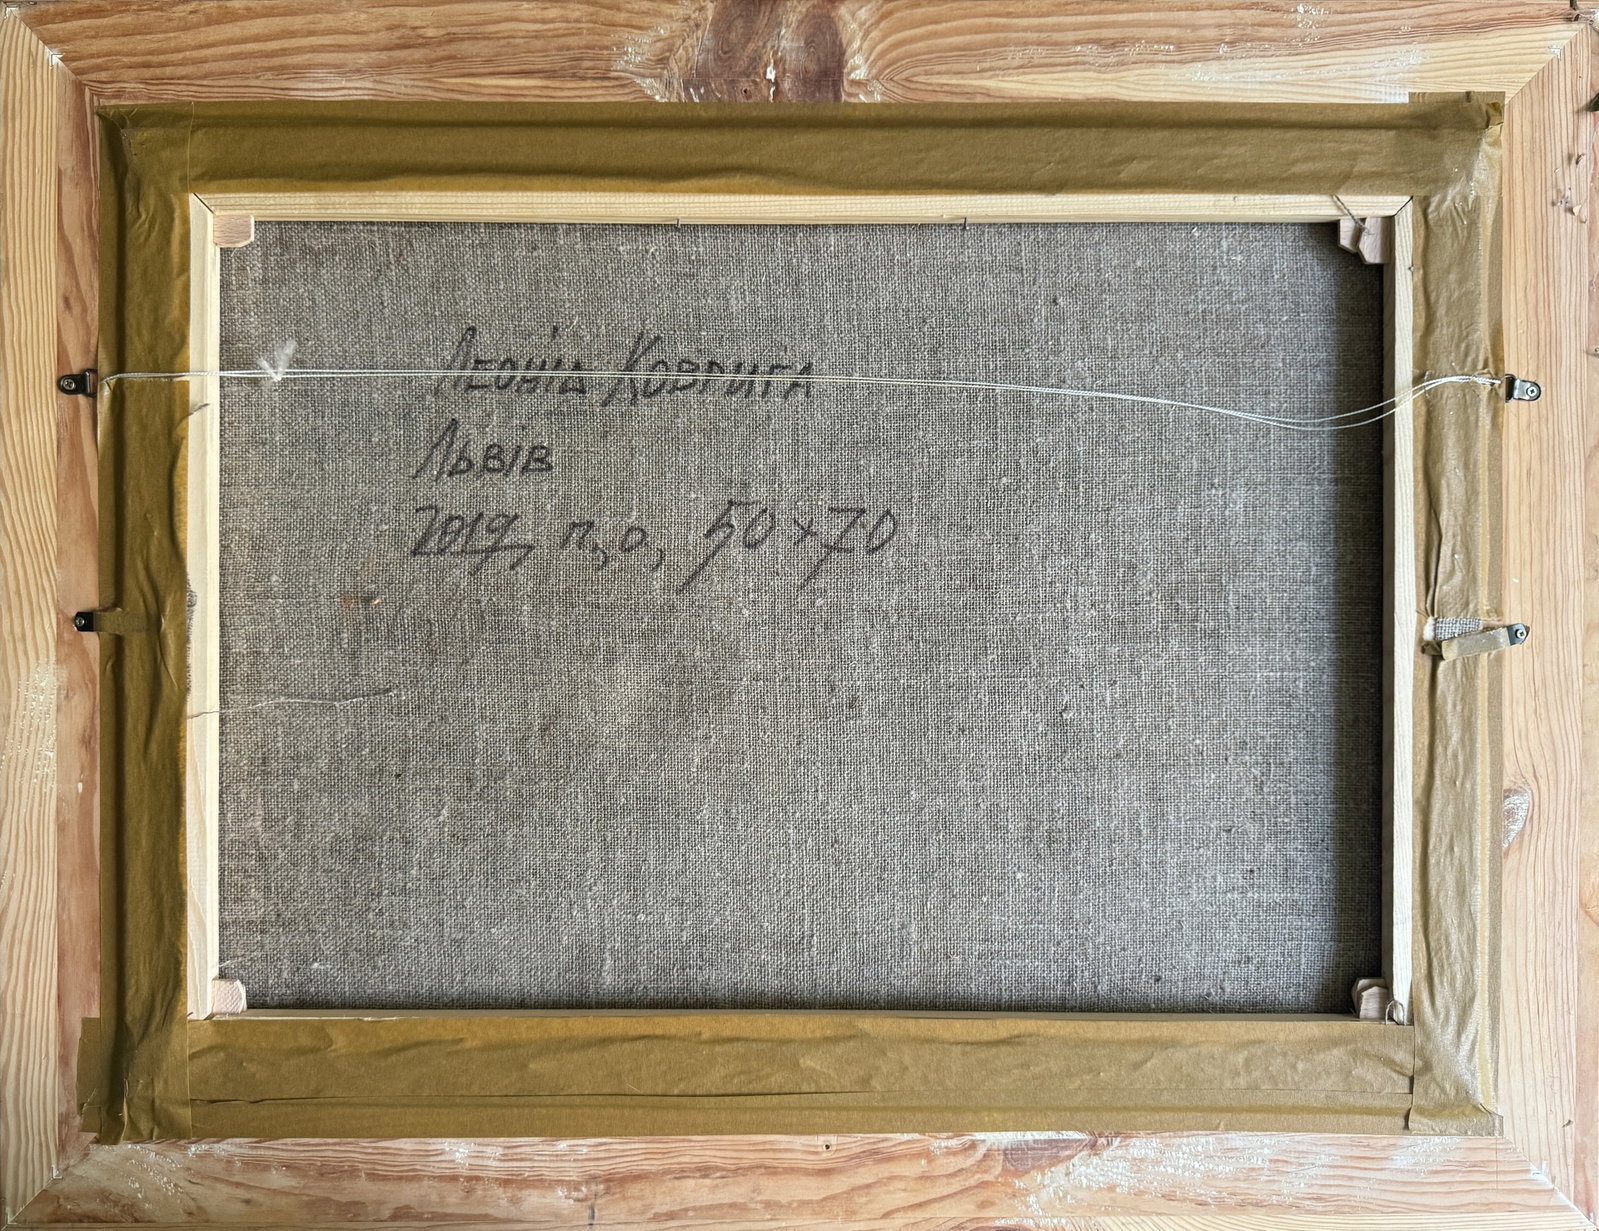 Леонід Коврига
Львів
2019, п, о, 50х70